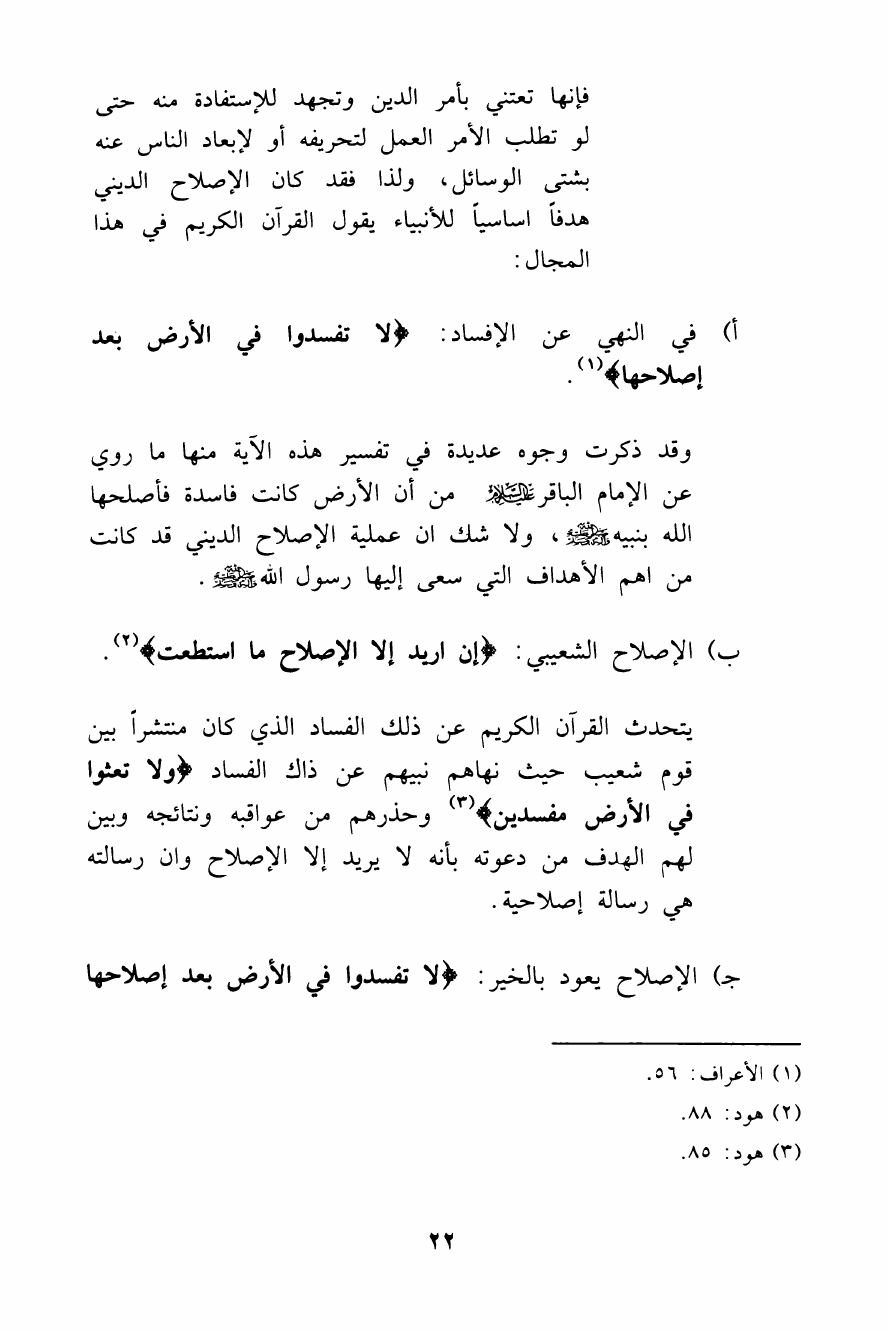 فإنها تعتني بأمر الدين وتجهد للإستفادة منه حتى
لو تطلب الأمر العمل لتحريفه أو لإبعاد الناس عنه
بشتى الوسائل، ولذا فقد كان الإصلاح الديني
هدفاً اساسياً للأنبياء يقول القرآن الكريم في هذا
المجال:
أ) في النهي عن الإفساد: ﴿لا تفسدوا في الأرض بعد
إصلاحها﴾(١).
وقد ذكرت وجوه عديدة في تفسير هذه الآية منها ما روي
عن الإمام الباقر عليه السلام من أن الأرض كانت فاسدة فأصلحها
الله بنبيه ﷺ، ولا شك ان عملية الإصلاح الديني قد كانت
من اهم الأهداف التي سعى إليها رسول الله ﷺ.
ب) الإصلاح الشعيبي: ﴿إن اريد إلا الإصلاح ما استطعت﴾(٢).
يتحدث القرآن الكريم عن ذلك الفساد الذي كان منتشراً بين
قوم شعيب حيث نهاهم نبيهم عن ذاك الفساد ﴿ولا تعثوا
في الأرض مفسدين﴾(٣) وحذرهم من عواقبه ونتائجه وبين
لهم الهدف من دعوته بأنه لا يريد إلا الإصلاح وان رسالته
هي رسالة إصلاحية.
جـ) الإصلاح يعود بالخير: ﴿لا تفسدوا في الأرض بعد إصلاحها
(١) الأعراف: ٥٦.
(٢) هود: ٨٨.
(٣) هود: ٨٥.
٢٢